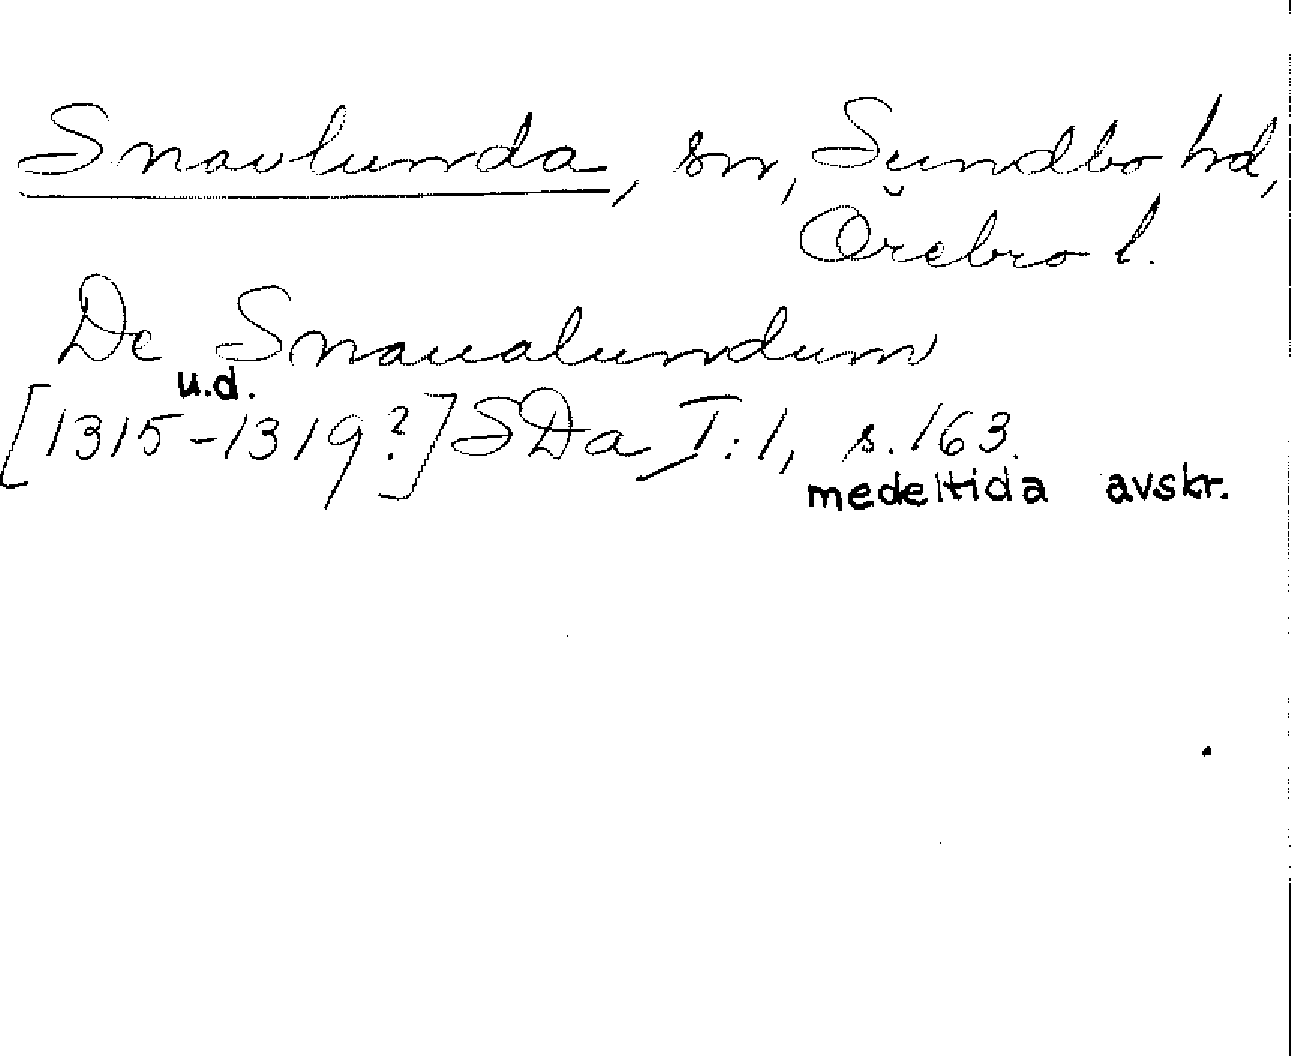 Snavlunda, sn, Sundbo hd,
Örebro l.
De Snaualundum
u.d.
[1315-1319?] SDa I:1, s. 163.
medeltida avskr.